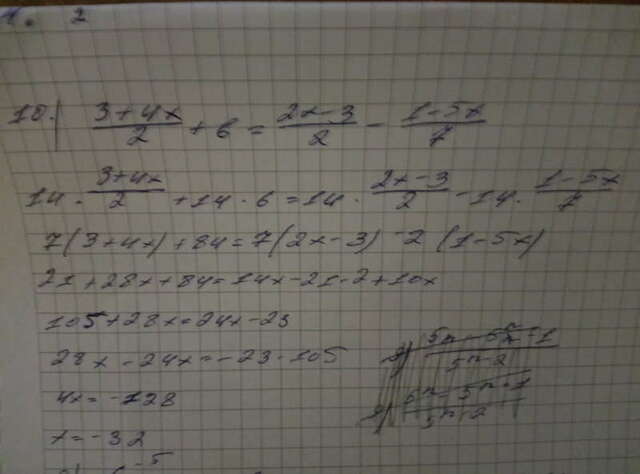 10) (3+4x)/2 + 6 = (2x-3)/2 - (1-5x)/7
14 · (3+4x)/2 + 14 · 6 = 14 · (2x-3)/2 - 14 · (1-5x)/7
7(3+4x) + 84 = 7(2x-3) - 2(1-5x)
21+28x+84=14x-21-2+10x
105+28x=24x-23
28x-24x=-23-105
4x=-128
x=-32